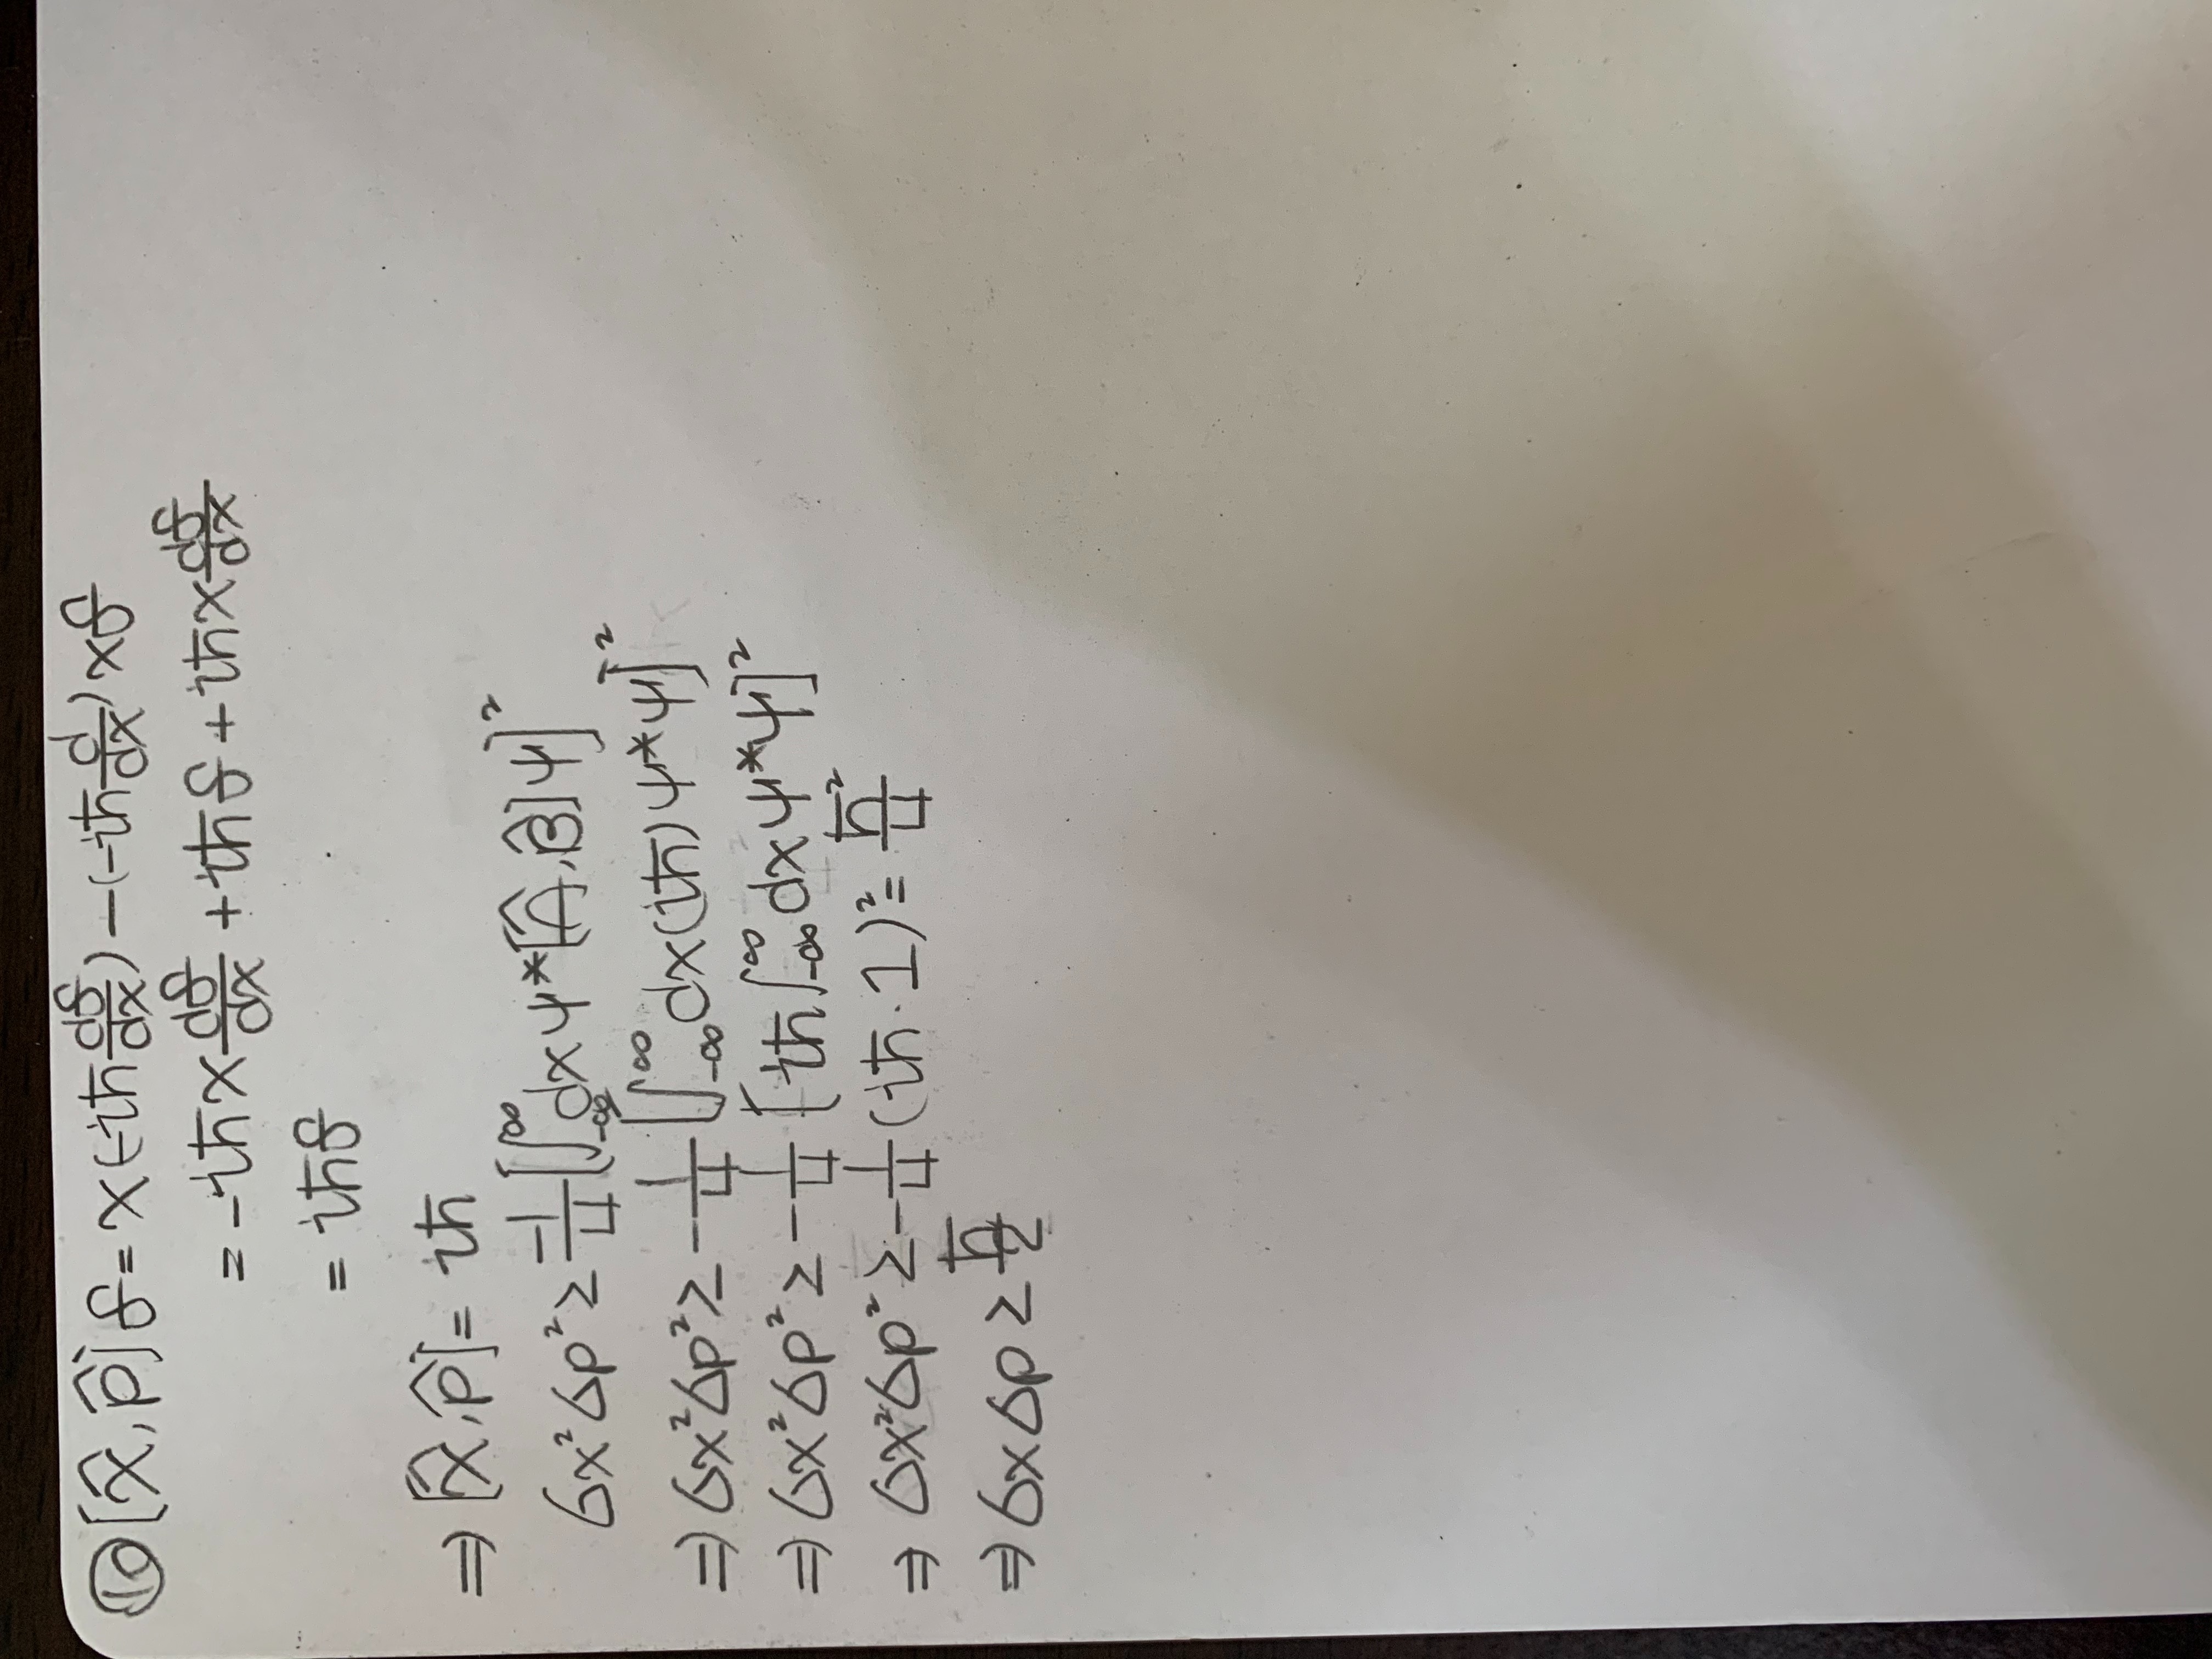 ⑩ [x̂, p̂] f = x(-iħ df/dx) - (-iħ d/dx) x f
= -iħ x df/dx + iħ f + iħ x df/dx
= iħ f
⇒ [x̂, p̂] = iħ
σx² σp² ≥ -1/4 [∫_{-∞}^{∞} dx ψ* [Â, B̂] ψ]²
⇒ σx² σp² ≥ -1/4 [∫_{-∞}^{∞} dx (iħ) ψ* ψ]²
⇒ σx² σp² ≥ -1/4 [iħ ∫_{-∞}^{∞} dx ψ* ψ]²
⇒ σx² σp² ≥ -1/4 (iħ · 1)² = ħ²/4
⇒ σx σp ≥ ħ/2